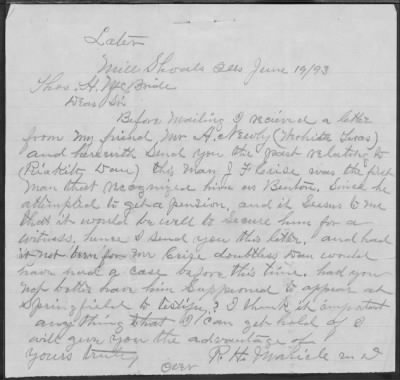 Later
Mill Shoals Ills June 19/93
Thos. H. McBride
Dear Sir
Before Mailing I recieved a letter
from my friend, Mr A. Newly (Texas)
and herewith Send you the part relating to
(Dan) this man J. F. was the first
man that recognized him in Benton. Since he
attempted to get a pension, and it Seems to me
that it would be well to Secure him for a
witness, hence I send you this letter, and had
it not been for Mr doubtless Dan would
have had a case before this time. had you
not better have him Suppoened to appear at
Springfield to testify? I think it important
any thing that I can get hold of I
will give you the advantage of
Yours truly R. H. M D
over